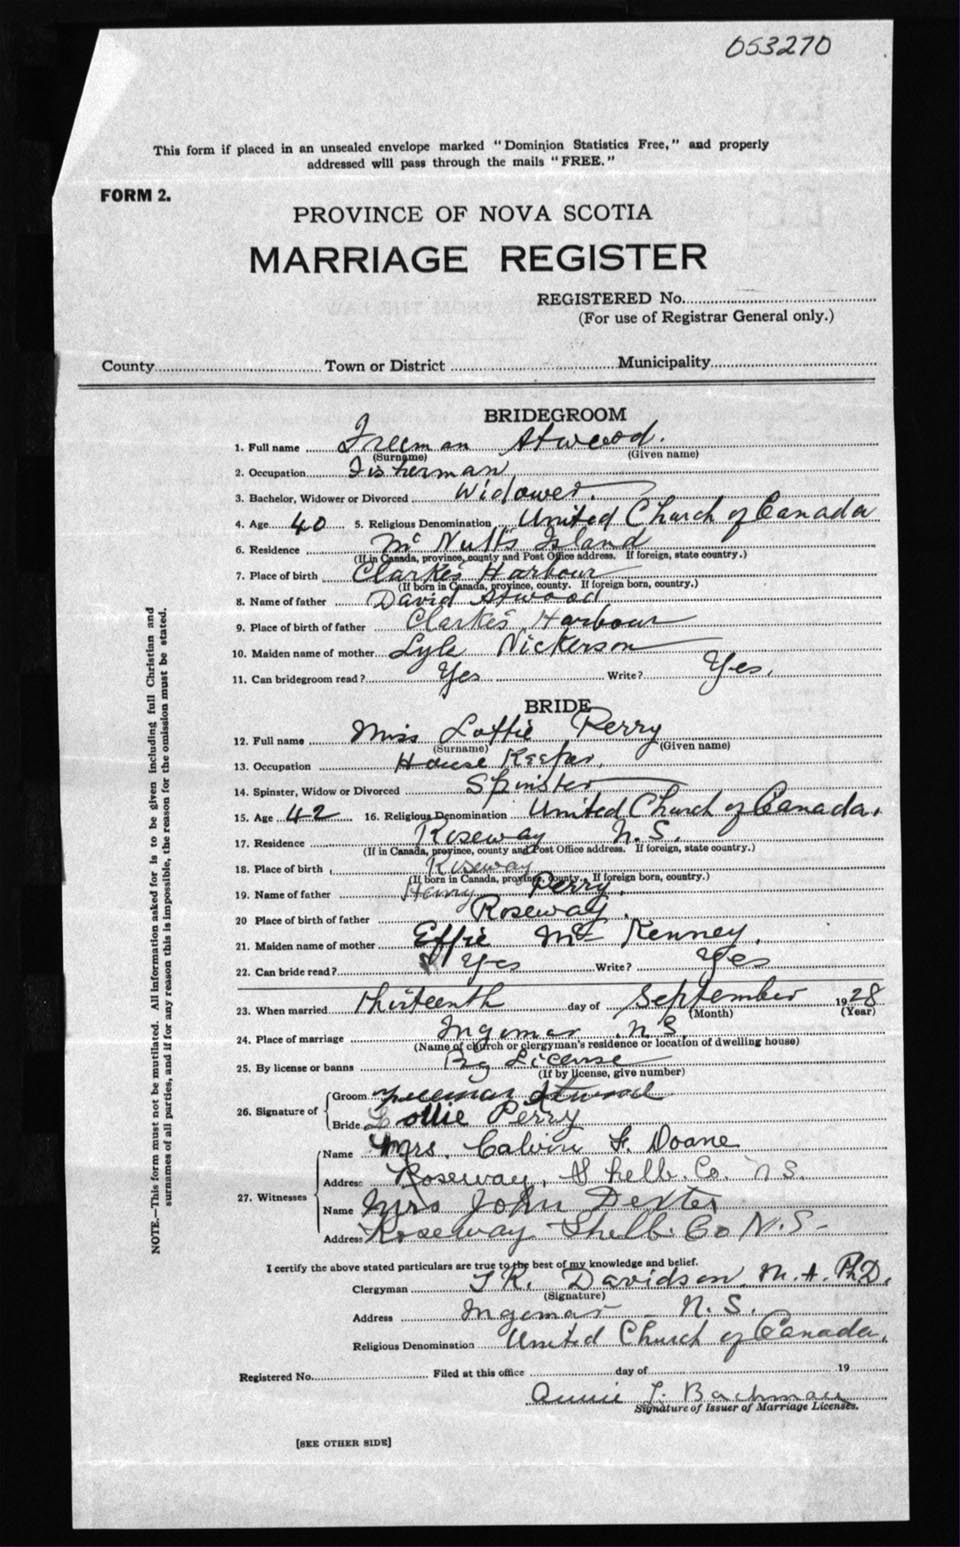 053270
This form if placed in an unsealed envelope marked "Dominion Statistics Free," and properly
addressed will pass through the mails "FREE."
FORM 2.
PROVINCE OF NOVA SCOTIA
MARRIAGE REGISTER
REGISTERED No.
(For use of Registrar General only.)
County Town or District Municipality
BRIDEGROOM
1. Full name Freeman Atwood.
(Surname) (Given name)
2. Occupation Fisherman
3. Bachelor, Widower or Divorced Widower.
4. Age 40 5. Religious Denomination United Church of Canada
6. Residence McNutt's Island
(If in Canada, province, county and Post Office address. If foreign, state country.)
7. Place of birth Clarke's Harbour
(If born in Canada, province, county. If foreign born, country.)
8. Name of father David Atwood
9. Place of birth of father Clarke's Harbour
10. Maiden name of mother Lyle Nickerson
11. Can bridegroom read? Yes Write? Yes.
BRIDE
12. Full name Miss Lottie Perry
(Surname) (Given name)
13. Occupation House Keeper.
14. Spinster, Widow or Divorced Spinster
15. Age 42 16. Religious Denomination United Church of Canada.
17. Residence Roseway N.S.
(If in Canada, province, county and Post Office address. If foreign, state country.)
18. Place of birth Roseway
(If born in Canada, province, county. If foreign born, country.)
19. Name of father Henry Perry.
20 Place of birth of father Roseway.
21. Maiden name of mother Effie McKenney.
22. Can bride read? Yes Write? Yes
23. When married Thirteenth day of September 1928
(Month) (Year)
24. Place of marriage Ingomar N.S.
(Name of church or clergyman's residence or location of dwelling house)
25. By license or banns By License
(If by license, give number)
26. Signature of Groom Freeman Atwood
Bride Lottie Perry
27. Witnesses Name Mrs. Calvin F. Doane
Address Roseway, Shelb. Co. N.S.
Name Mrs John Dexter
Address Roseway Shelb. Co N.S-
I certify the above stated particulars are true to the best of my knowledge and belief.
Clergyman T.K. Davidson M.A. Ph.D.
(Signature)
Address Ingomar N.S.
Religious Denomination United Church of Canada.
Registered No. Filed at this office day of 19
Annie L. Bachman
Signature of Issuer of Marriage Licenses.
[SEE OTHER SIDE]
NOTE.—This form must not be mutilated. All information asked for is to be given including full Christian and
surnames of all parties, and if for any reason this is impossible, the reason for the omission must be stated.